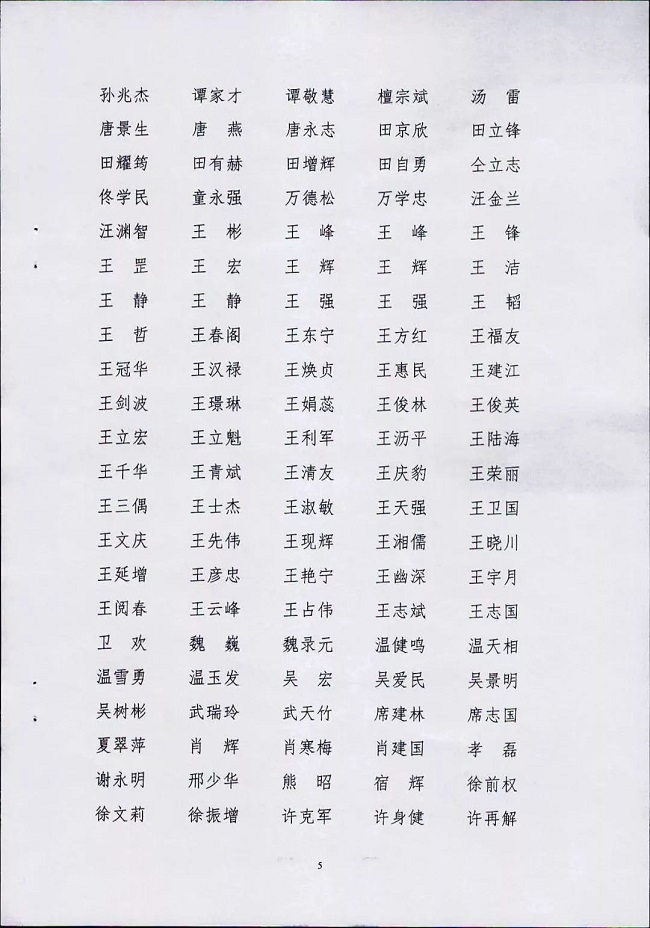 孙兆杰 谭家才 谭敬慧 檀宗斌 汤 雷
唐景生 唐 燕 唐永志 田京欣 田立锋
田耀筠 田有赫 田增辉 田自勇 仝立志
佟学民 童永强 万德松 万学忠 汪金兰
汪渊智 王 彬 王 峰 王 峰 王 锋
王 罡 王 宏 王 辉 王 辉 王 洁
王 静 王 静 王 强 王 强 王 韬
王 哲 王春阁 王东宁 王方红 王福友
王冠华 王汉禄 王焕贞 王惠民 王建江
王剑波 王璟琳 王娟蕊 王俊林 王俊英
王立宏 王立魁 王利军 王沥平 王陆海
王千华 王青斌 王清友 王庆豹 王荣丽
王三偶 王士杰 王淑敏 王天强 王卫国
王文庆 王先伟 王现辉 王湘儒 王晓川
王延增 王彦忠 王艳宁 王幽深 王宇月
王阅春 王云峰 王占伟 王志斌 王志国
卫 欢 魏 巍 魏录元 温健鸣 温天相
温雪勇 温玉发 吴 宏 吴爱民 吴景明
吴树彬 武瑞玲 武天竹 席建林 席志国
夏翠萍 肖 辉 肖寒梅 肖建国 孝 磊
谢永明 邢少华 熊 昭 宿 辉 徐前权
徐文莉 徐振增 许克军 许身健 许再解
5